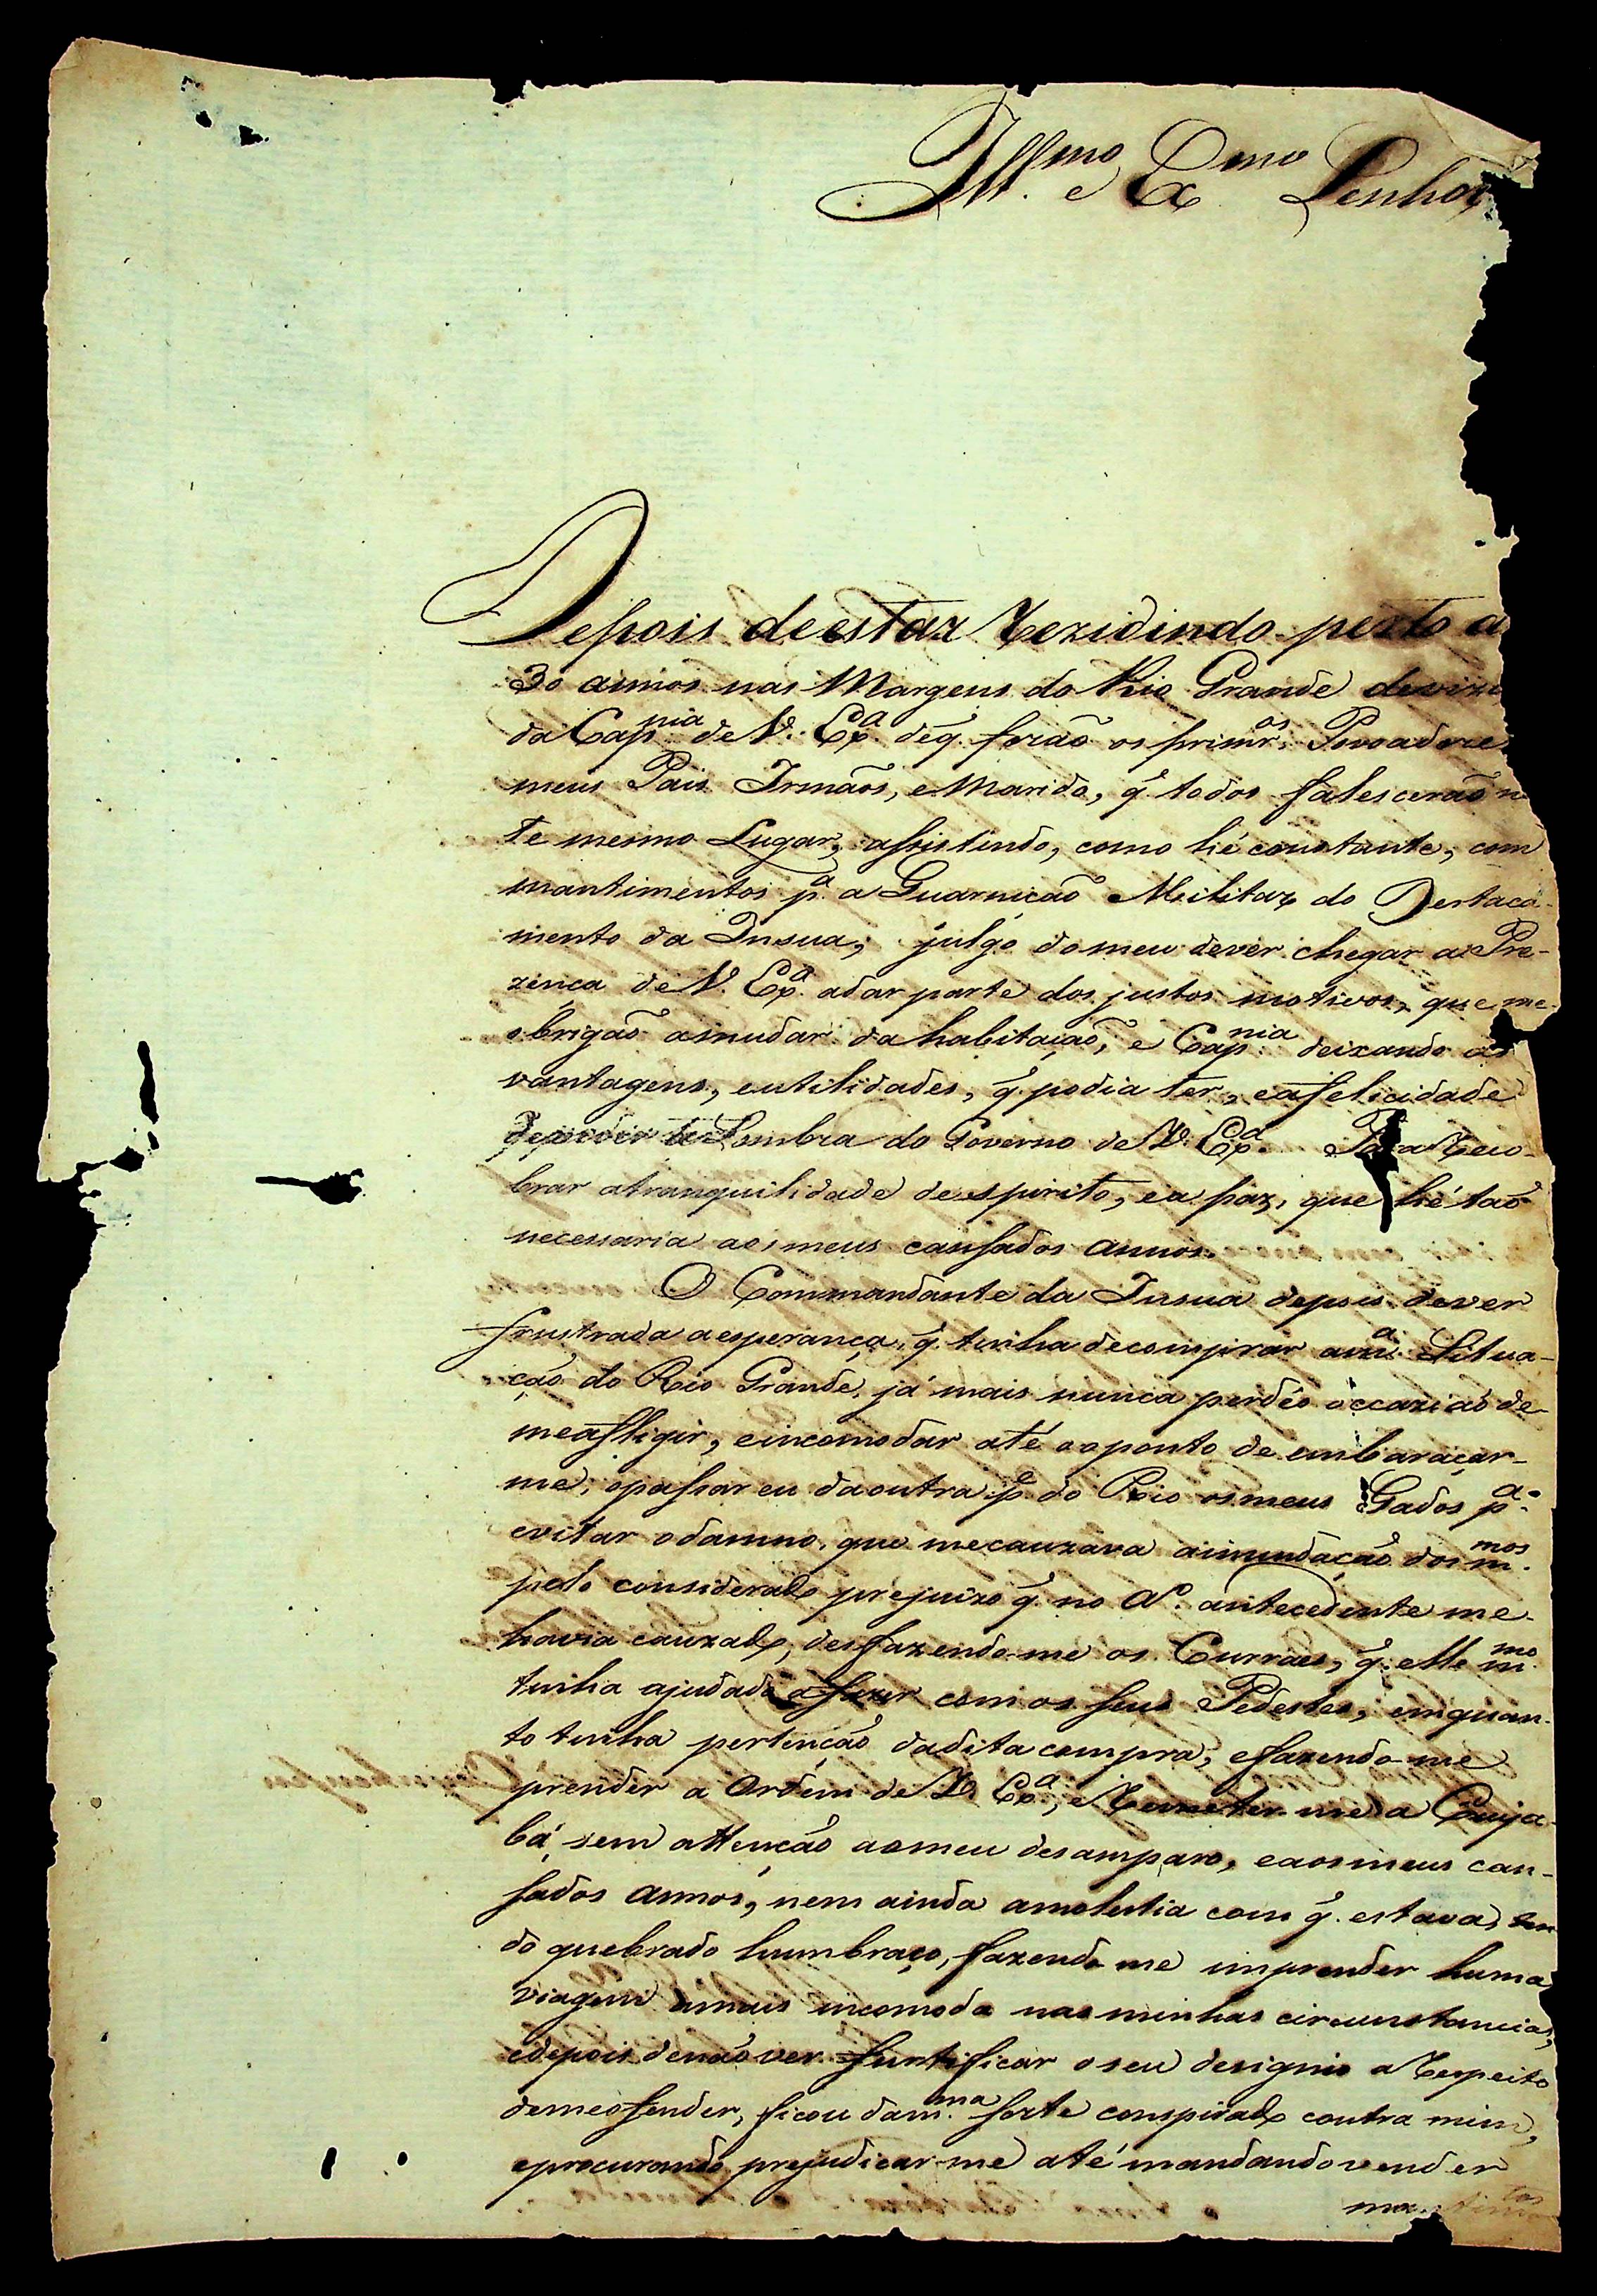 Ill.mo e Ex.mo Senhor
Depois de estar Rezidindo perto a
30 annos nas Margens do Rio Grande deviza
da Cap.nia de V. Ex.a de q̃ forão os prim.ros Povoadore
meus Pais Irmãos, e Marido, q̃ todos falescerão n
te mesmo Lugar, assistindo, como hé constante, com
mantimentos p.a a Guarnicão Militar do Destaca-
mento da Insua; julgo do meu dever chegar a Pre-
zença de V. Ex.a adar parte dos justos motivos, que me
obrigão amudar da habitação, e Cap.nia deixando as
vantagens, eutilidades, q̃ podia ter, eafelicidade
Sombra do Governo de V. Ex.a Para Reco-
brar atranquilidade de espirito, ea paz, que hé tão
necessaria aos meus cansados annos.
O Commandante da Insua depois dever
frustrada aesperança, q̃ tinha decomprar a Situa-
ção do Rio Grande, já mais nunca perdêo occazião de
meafligir, eincomodar até ao ponto de embaraçar-
me, opassar eu daoutra p.e do Rio osmeus Gados p.a
evitar odamno, que mecauzava ainundação dos m.mos
pelo considerado prejuizo q̃ no A.o antecedente me
havia cauzado, desfazendo-me os Curraes, q̃ elle m.mo
tinha ajudado afazer com os seus Pedestes, emquan-
to tinha pertenção dadita compra, efazendo-me
prender a Ordem de V. Ex.a, e Remeter-me a Cuija-
bá, sem attenção aomeu desamparo, eaosmeus can-
sados annos, nem ainda amolestia com q̃ estava, ten
do quebrado humbraço, fazendo me imprender huma
viagem amais incomoda nas minhas circunstancias,
edepois denão ver o seu designio a Respeito
demeofender, ficou dam.ma sorte conspirado contra mim,
eprocurando prejudicar-me até mandando vender
mantim.tos